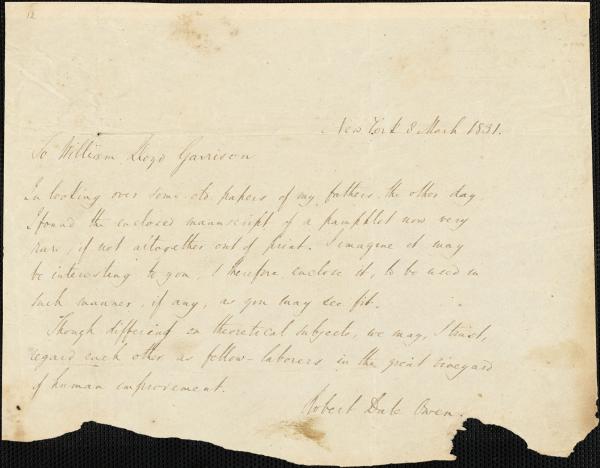 12
New York 8 March 1831.
To William Lloyd Garrison
In looking over some old papers of my father's the other day,
I found the enclosed manuscript of a pamphlet now very
rare, if not altogether out of print. I imagine it may
be interesting to you, & therefore enclose it, to be used in
such manner, if any, as you may see fit.
Though differing on theoretical subjects, we may, I trust,
regard each other as fellow-laborers in the great vineyard
of human improvement.
Robert Dale Owen.